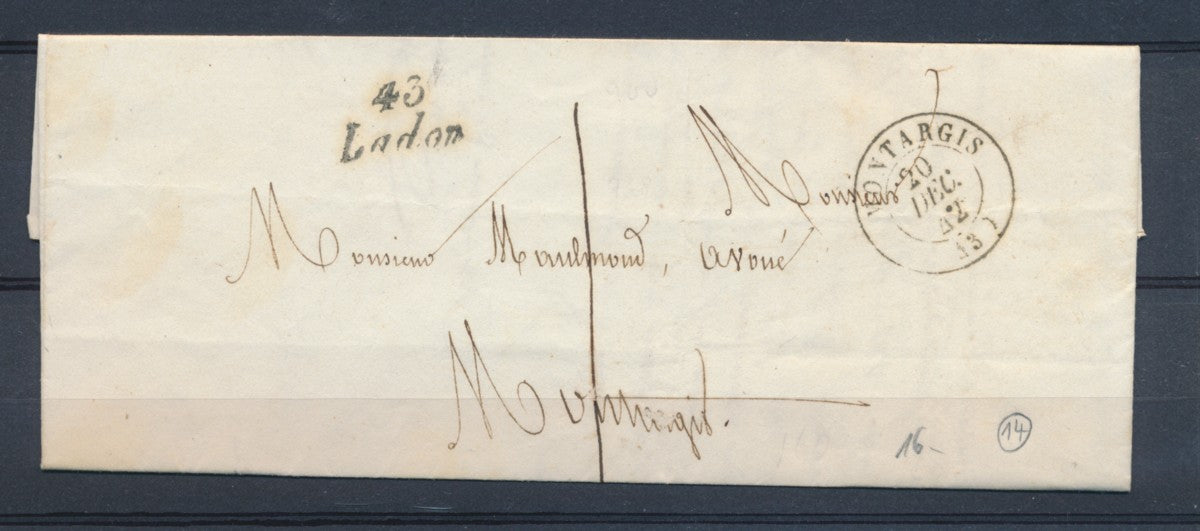 43
Ladon
MONTARGIS
20
DEC.
42
(43)
Monsieur
Monsieur Maulmond, avoué
Montargis.
16-
14